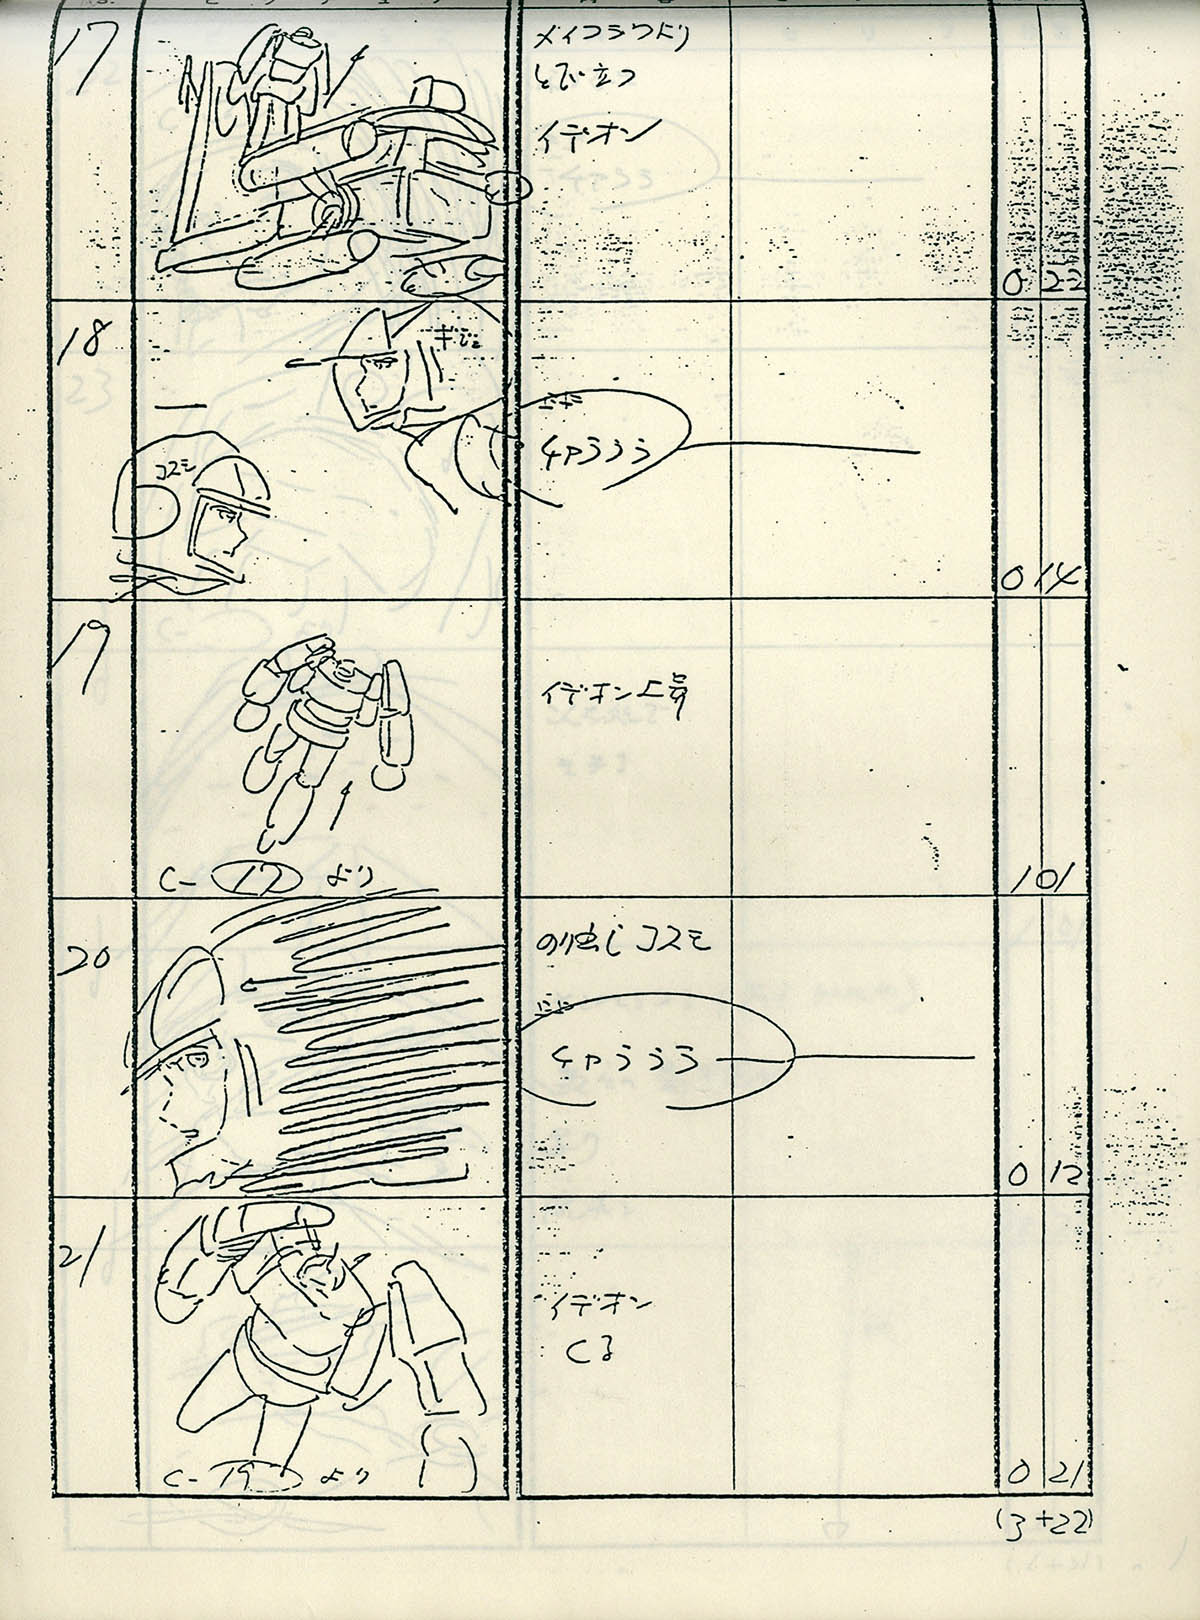 17
メイフラワより
とび立つ
イデオン
0 22
18
ギジェ
コスモ
チャララララ
0 14
19
イデオン上昇
C-17 より
1 01
20
のり出しコスモ
チャラララ
0 12
21
イデオン
くる
C-19 より
0 21
(3+22)